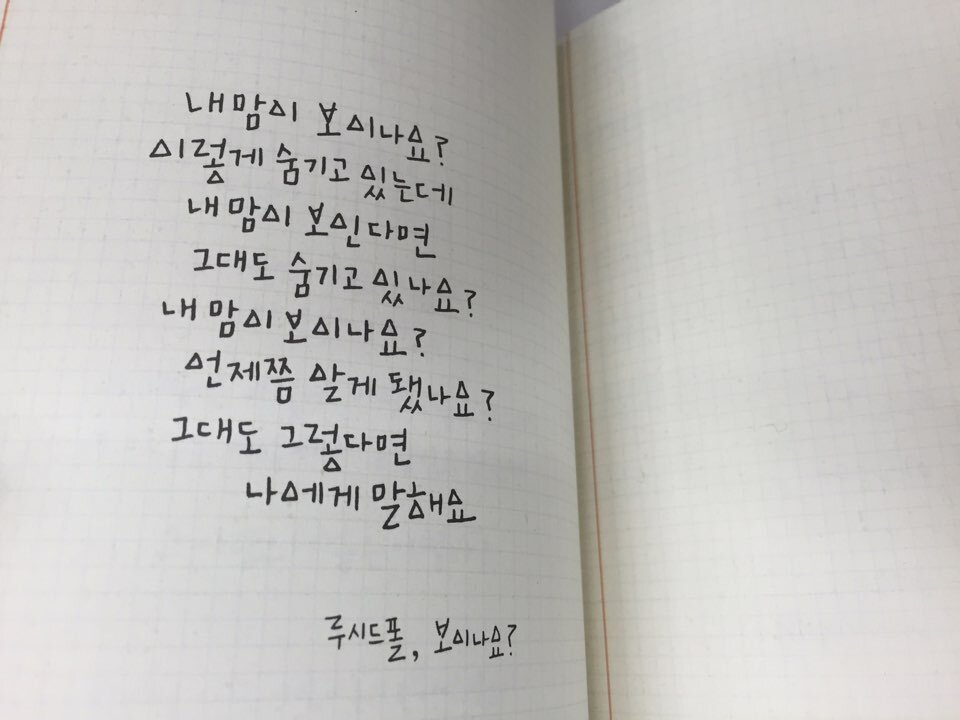 내 맘이 보이나요?
이렇게 숨기고 있는데
내 맘이 보인다면
그대도 숨기고 있나요?
내 맘이 보이나요?
언제쯤 알게 됐나요?
그대도 그렇다면
나에게 말해요
루시드폴, 보이나요?